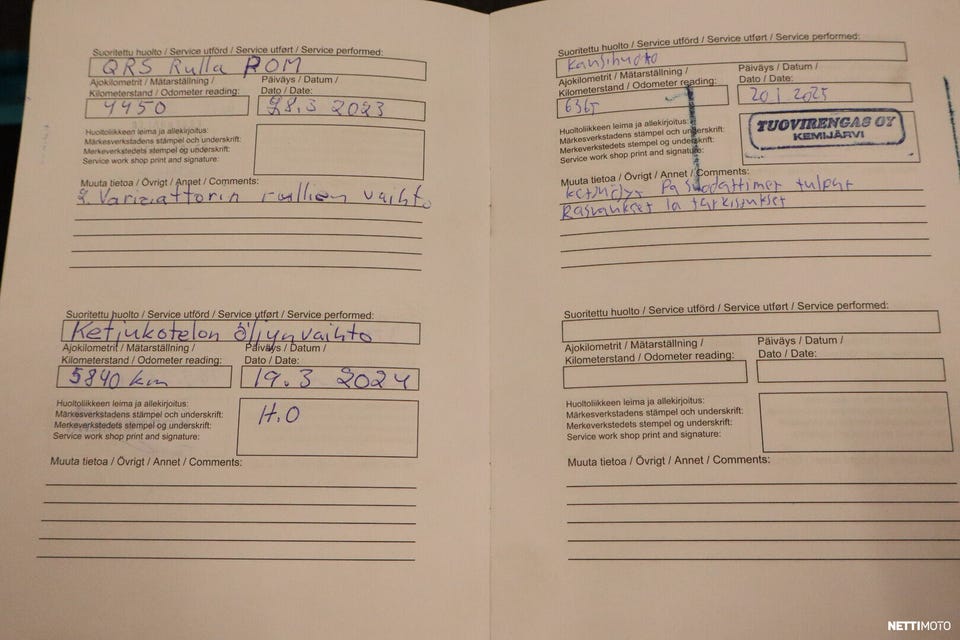 Suoritettu huolto / Service utförd / Service utført / Service performed:
QRS Rulla ROM
Ajokilometrit / Mätarställning /
Kilometerstand / Odometer reading:
4450
Päiväys / Datum /
Dato / Date:
28.3 2023
Huoltoliikkeen leima ja allekirjoitus:
Märkesverkstadens stämpel och underskrift:
Merkeverkstedets stempel og underskrift:
Service work shop print and signature:
Muuta tietoa / Övrigt / Annet / Comments:
2. Variaattorin rullien vaihto
Suoritettu huolto / Service utförd / Service utført / Service performed:
Ketjukotelon öljynvaihto
Ajokilometrit / Mätarställning /
Kilometerstand / Odometer reading:
5840 km
Päiväys / Datum /
Dato / Date:
19.3 2024
Huoltoliikkeen leima ja allekirjoitus:
Märkesverkstadens stämpel och underskrift:
Merkeverkstedets stempel og underskrift:
Service work shop print and signature:
H.O
Muuta tietoa / Övrigt / Annet / Comments:
Suoritettu huolto / Service utförd / Service utført / Service performed:
Ajokilometrit / Mätarställning /
Kilometerstand / Odometer reading:
Päiväys / Datum /
Dato / Date:
20 1 2025
Huoltoliikkeen leima ja allekirjoitus:
Märkesverkstadens stämpel och underskrift:
Merkeverkstedets stempel og underskrift:
Service work shop print and signature:
TUOVIRENGAS OY
KEMIJÄRVI
Muuta tietoa / Övrigt / Annet / Comments:
tulpat
Rasvaukset ja tarkistukset
Suoritettu huolto / Service utförd / Service utført / Service performed:
Ajokilometrit / Mätarställning /
Kilometerstand / Odometer reading:
Päiväys / Datum /
Dato / Date:
Huoltoliikkeen leima ja allekirjoitus:
Märkesverkstadens stämpel och underskrift:
Merkeverkstedets stempel og underskrift:
Service work shop print and signature:
Muuta tietoa / Övrigt / Annet / Comments:
NETTIMOTO